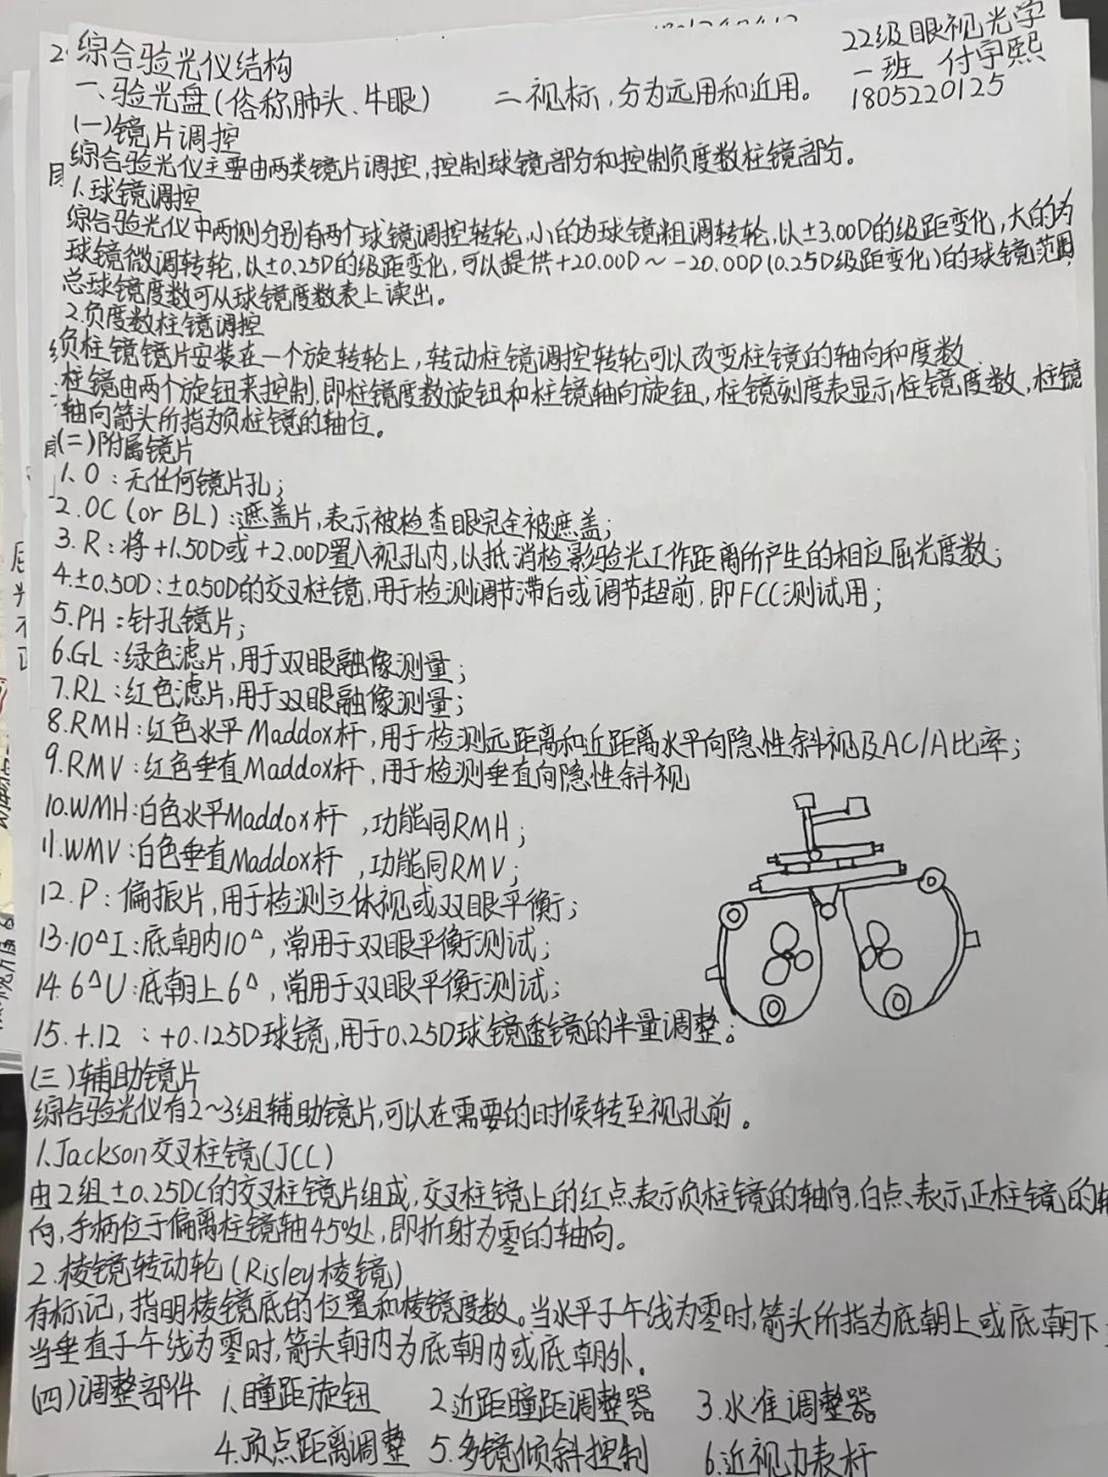 综合验光仪结构
22级眼视光学
一班 付宇熙
1805220125
一、验光盘(俗称肺头、牛眼) 二视标,分为远用和近用。
(一)镜片调控
综合验光仪主要由两类镜片调控,控制球镜部分和控制负度数柱镜部分。
1.球镜调控
综合验光仪中两侧分别有两个球镜调控转轮,小的为球镜粗调转轮,以±3.00D的级距变化,大的为
球镜微调转轮,以±0.25D的级距变化,可以提供+20.00D~-20.00D(0.25D级距变化)的球镜范围,
总球镜度数可从球镜度数表上读出。
2.负度数柱镜调控
负柱镜镜片安装在一个旋转轮上,转动柱镜调控转轮可以改变柱镜的轴向和度数
柱镜由两个旋钮来控制,即柱镜度数旋钮和柱镜轴向旋钮,柱镜刻度表显示柱镜度数,柱镜
轴向箭头所指为负柱镜的轴位。
(二)附属镜片
1.O:无任何镜片孔;
2.OC(or BL):遮盖片,表示被检查眼完全被遮盖;
3.R:将+1.50D或+2.00D置入视孔内,以抵消检影验光工作距离所产生的相应屈光度数;
4.±0.50D:±0.50D的交叉柱镜,用于检测调节滞后或调节超前,即FCC测试用;
5.PH:针孔镜片;
6.GL:绿色滤片,用于双眼融像测量;
7.RL:红色滤片,用于双眼融像测量;
8.RMH:红色水平Maddox杆,用于检测远距离和近距离水平向隐性斜视及AC/A比率;
9.RMV:红色垂直Maddox杆,用于检测垂直向隐性斜视
10.WMH:白色水平Maddox杆,功能同RMH;
11.WMV:白色垂直Maddox杆,功能同RMV;
12.P:偏振片,用于检测立体视或双眼平衡;
13.10△I:底朝内10△,常用于双眼平衡测试;
14.6△U:底朝上6△,常用于双眼平衡测试;
15.+.12:+0.125D球镜,用于0.25D球镜透镜的半量调整。
(三)辅助镜片
综合验光仪有2~3组辅助镜片,可以在需要的时候转至视孔前。
1.Jackson交叉柱镜(JCC)
由2组±0.25DC的交叉柱镜片组成,交叉柱镜上的红点表示负柱镜的轴向,白点表示正柱镜的轴
向,手柄位于偏离柱镜轴45°处,即折射为零的轴向。
2.棱镜转动轮(Risley棱镜)
有标记,指明棱镜底的位置和棱镜度数。当水平子午线为零时,箭头所指为底朝上或底朝下;
当垂直子午线为零时,箭头朝内为底朝内或底朝外。
(四)调整部件 1.瞳距旋钮 2.近距瞳距调整器 3.水准调整器
4.顶点距离调整 5.多镜倾斜控制 6.近视力表杆